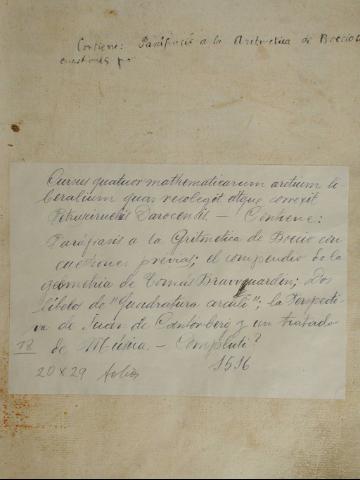 Contiene: Paráfrasis a la Aritmetica de Boecio c
cuestiones p
Cursus quatuor mathematicarum artium li
beralium quas recolegit atque correxit
Petrus Ciruelus Darocensis — Contiene:
Paráfrasis a la Aritmetica de Boecio con
cuestiones previas; el compendio de la
geometria de Tomás Bravvardin; Dos
libros de "Quadratura circuli"; la Perspecti
va de Juan de Cantorbery y un tratado
de Música. — Compluti?
18
1516
20 x 29 folios